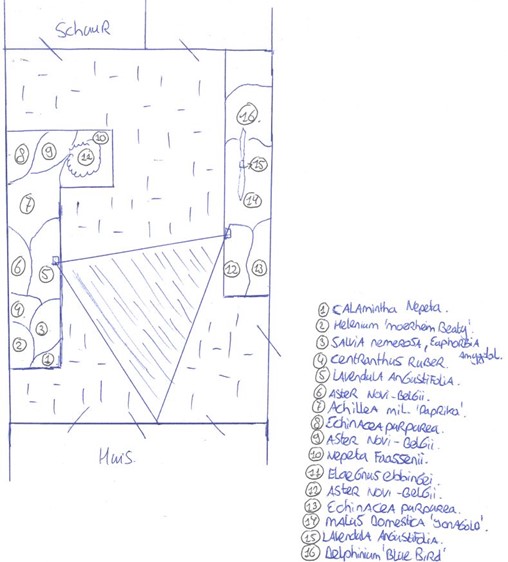 SCHUUR
16
8
9
10
12
15
7
14
6
5
12
13
4
3
2
1
HUIS.
1 CALAMINTHA NEPETA.
2 HELENIUM 'MOERHEIM BEATY'.
3 SALVIA NEMEROSA, EUPHORBIA
AMYGDAL.
4 CENTRANTHUS RUBER.
5 LAVENDULA ANGUSTIFOLIA.
6 ASTER NOVI-BELGII.
7 ACHILLEA MIL. 'PAPRIKA'.
8 ECHINACEA PURPUREA.
9 ASTER NOVI-BELGII.
10 NEPETA FAASSENII.
11 ELAEGNUS EBBINGEI.
12 ASTER NOVI-BELGII.
13 ECHINACEA PURPUREA.
14 MALUS DOMESTICA 'JONAGOLD'.
15 LAVENDULA ANGUSTIFOLIA.
16 DELPHINIUM 'BLUE BIRD'